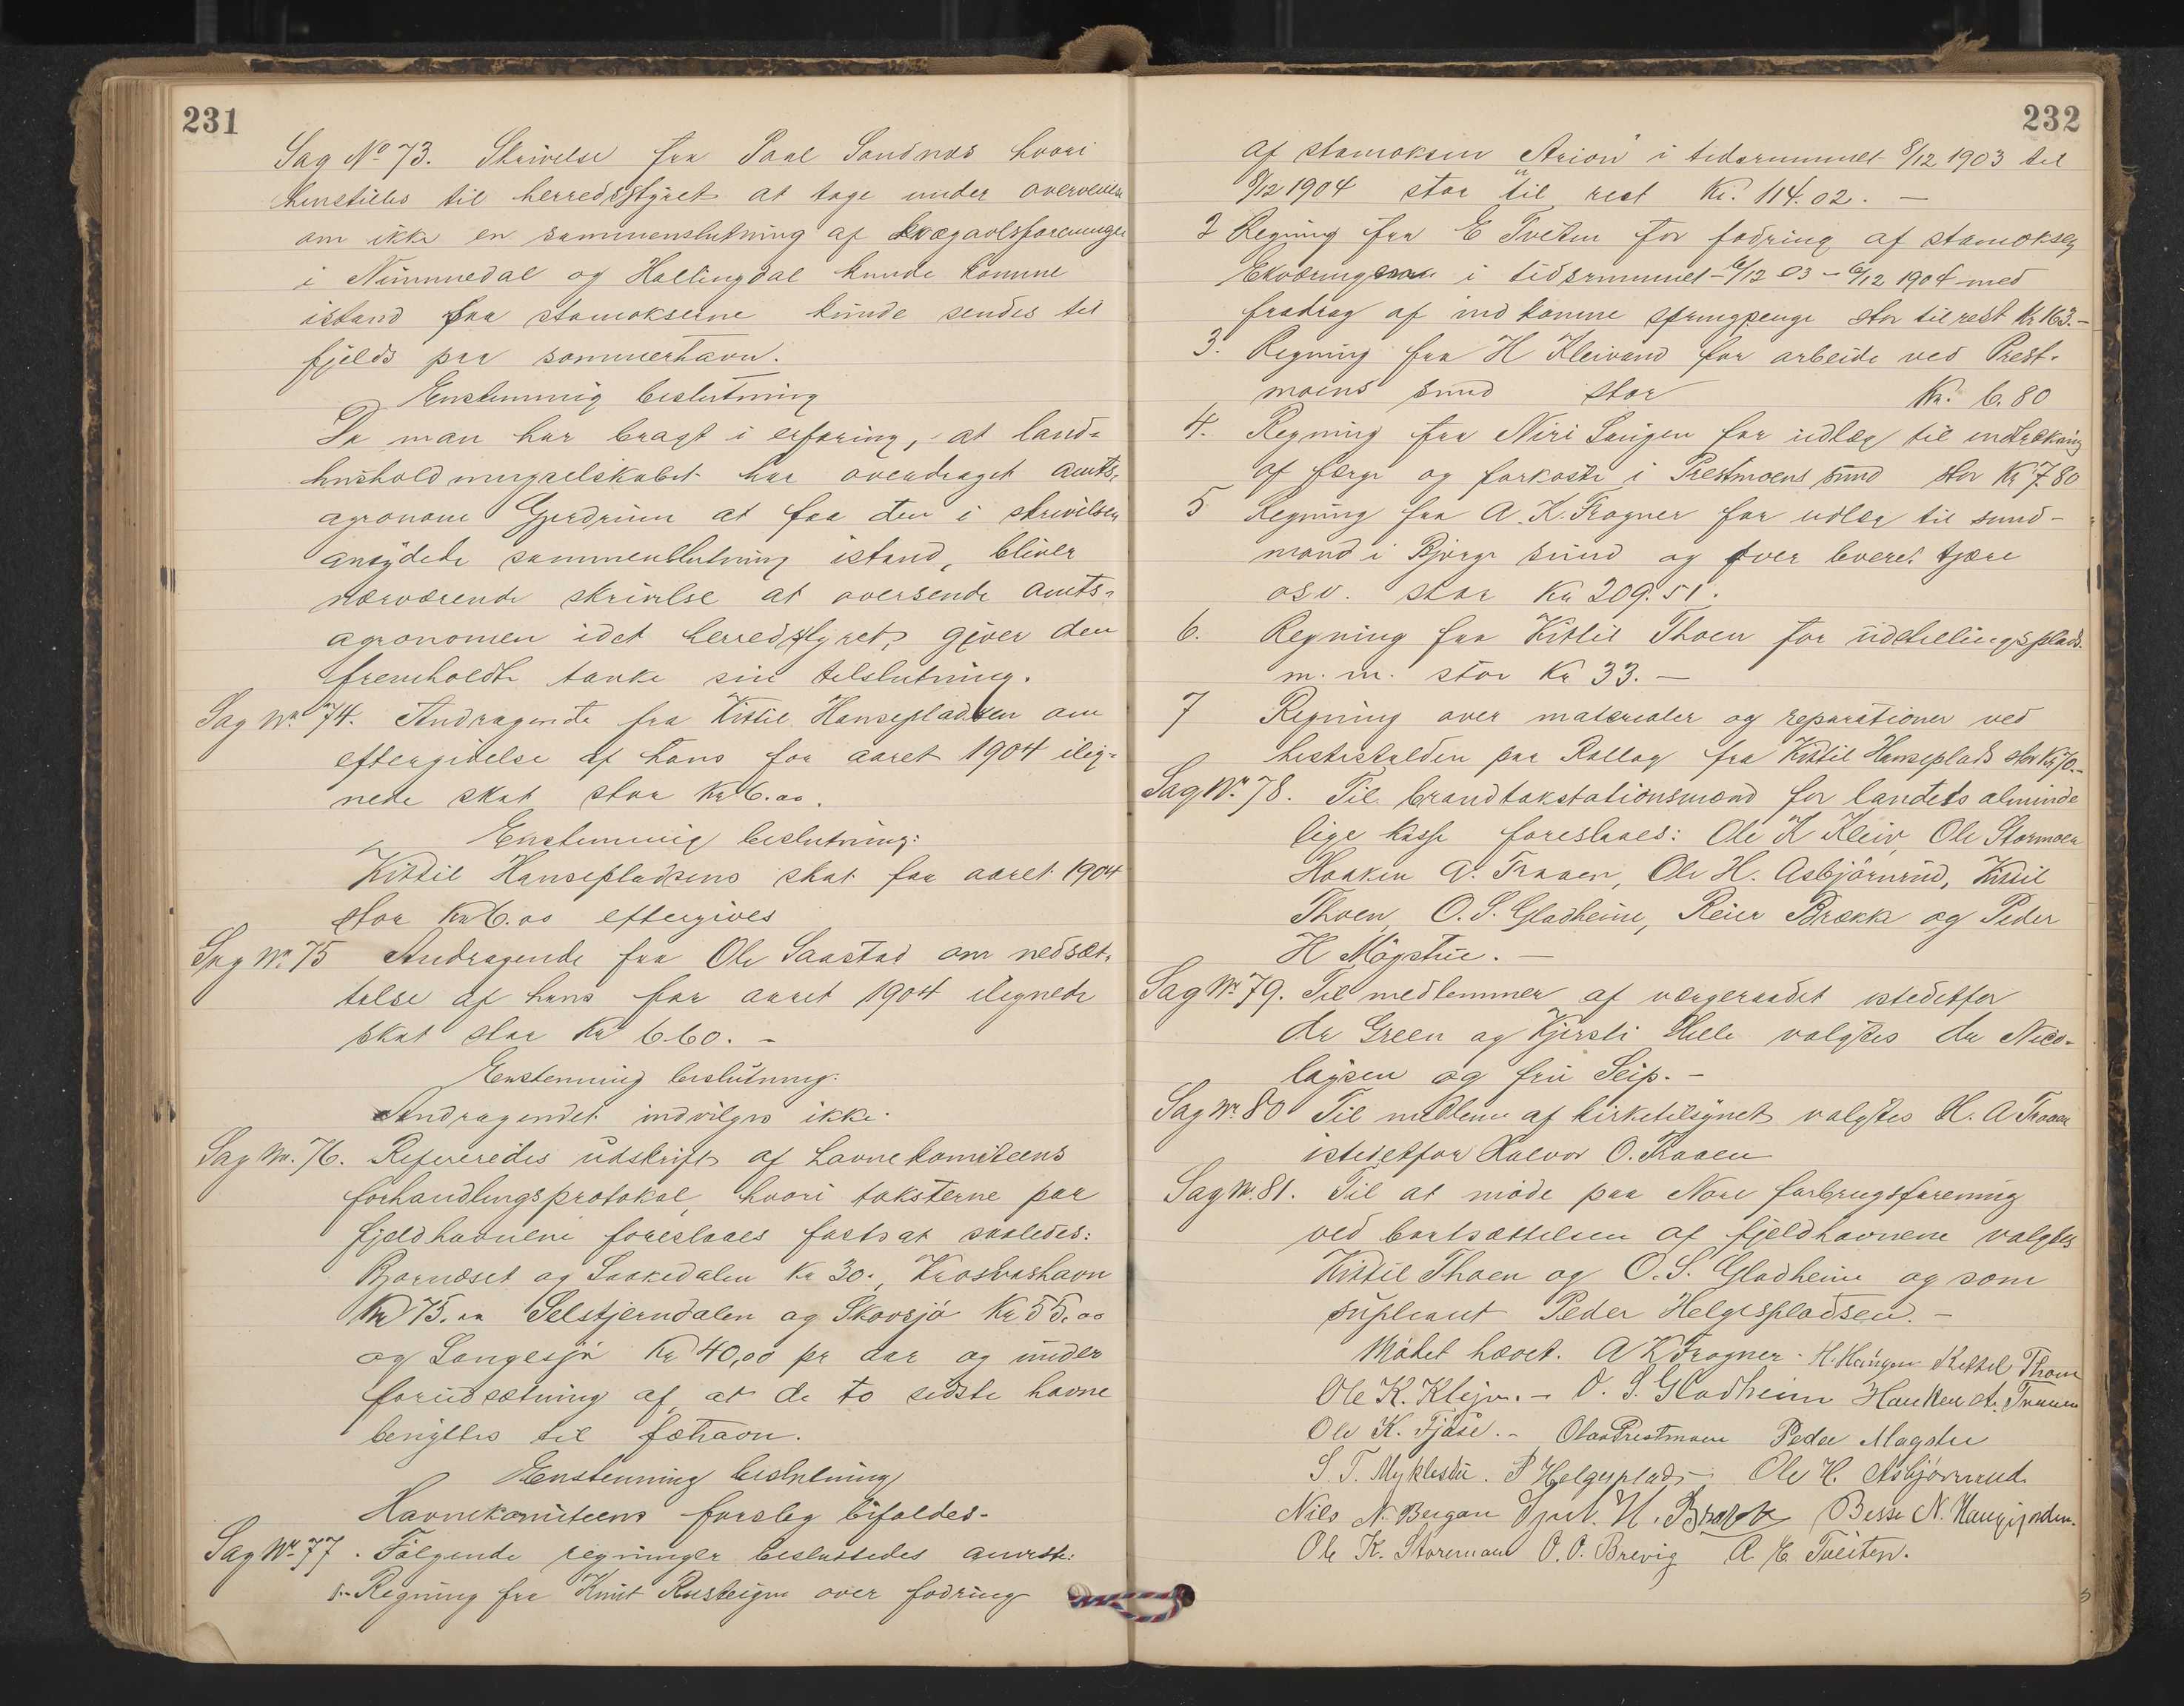 231
Sag No 73. Skrivelse fra Paal Sandnæs hvori
henstilles til herredsstyret at tage under overveielse
om ikke en sammenslutning af kvægavlsforeninger
i Nummedal og Hallingdal kunde komme
istand saa stamokserne kunde sendes til
fjelds paa sommerhavn.
Enstemmig beslutning
Da man har bragt i erfaring, at land-
husholdningselskabet har overdraget amts-
agronom Gjerdrum at faa den i skrivelsen
antydede sammenslutning istand, bliver
nærværende skrivelse at oversende amts-
agronomen idet herredstyret giver den
fremholdte tanke sin tilslutning.
Sag Nr 74. Andragende fra Kittil Hansepladsen om
eftergivelse af hans for aaret 1904 ilig-
nede skat stor Kr 6.00.
Enstemmig beslutning:
Kittil Hansepladsens skat for aaret 1904
stor Kr 6.00 eftergives
Sag Nr 75 Andragende fra Ole Saastad om nedsæt-
telse af hans for aaret 1904 ilignede
skat stor Kr 6.60. -
Enstemmig beslutning:
Andragendet indvilges ikke.
Sag Nr. 76. Refereredes udskrift af havnekomiteens
forhandlingsprotokol, hvori taksterne paa
fjeldhavnene foreslaaes fastsat saaledes:
Bjørnæset og Saakedalen Kr 30.,
Kr 75.00 Selstjerndalen og Skovsjø Kr 55.00
og Langesjø Kr 40,00 pr aar og under
forudsætning af at de to sidste havne
benyttes til fæhavn.
Enstemmig beslutning
Havnekomiteens forslag bifaldes.
Sag Nr 77. Følgende regninger besluttedes anviste:
1. Regning fra Knut Rusteigen over fodring
232
af stamoksen "Arion" i tidsrummet 8/12 1903 til
8/12 1904 stor til rest Kr. 114.02. -
2 Regning fra E Tveiten for fodring af stamoksen
i tidsrummet 6/12 03 - 6/12 1904 med
fradrag af indkomne springpenge stor til rest Kr 163.-
3. Regning fra H Kleivand for arbeide ved Prest-
moens sund stor Kr. 6.80
4. Regning fra Niri Saugen for udlæg til indtrækning
af færge og farkoste i Prestmoens sund stor Kr 7.80
5 Regning fra A. K. Frogner for udlæg til sund-
mand i Bjørge sund og over leveret tjære
osv. stor Kr 209.51.
6. Regning fra Kittil Thoen for udstillingsplads
m. m. stor Kr 33. -
7 Regning over materialer og reparationer ved
hestestalden paa Rollag fra Kittil Hanseplads stor Kr 70.-
Sag Nr. 78. Til brandtakstationsmænd for landets alminde
lige kasse foreslaaes: Ole K Kleiv, Ole Stormoen
Haaken A. Traaen, Ole H. Asbjørnrud, Kittil
Thoen, O. S. Gladheim, Reier Brække og Peder
H Møgstue. -
Sag Nr 79. Til medlemmer af vergeraadet istedetfor
dr Green og Kjersti Helle valgtes dr Nico-
laysen og fru Seip. -
Sag Nr. 80 Til medlem af kirketilsynet valgtes H. A Traaen
istedetfor Halvor O. Traaen
Sag Nr. 81. Til at møde paa Nore forbrugsforening
ved bortsættelsen af fjeldhavnene valgtes
Kittil Thoen og O. S. Gladheim og som
supleant Peder Helgespladsen. -
Mødet hævet. A K Frogner. H. Haugen Kittil Thoen
Ole K. Kleiv. - O. S. Gladheim Haaken A. Traaen
Ole K. Fjøse. - Olav Prestmoen Peder Møgstue
S. T. Myklestu. P Helgeplads. Ole H. Asbjørnrud
Nils N. Bergan H. Brække Besse N. Haugjorden.
Ole K. Stormoen O. O. Brevig A E Tveiten.